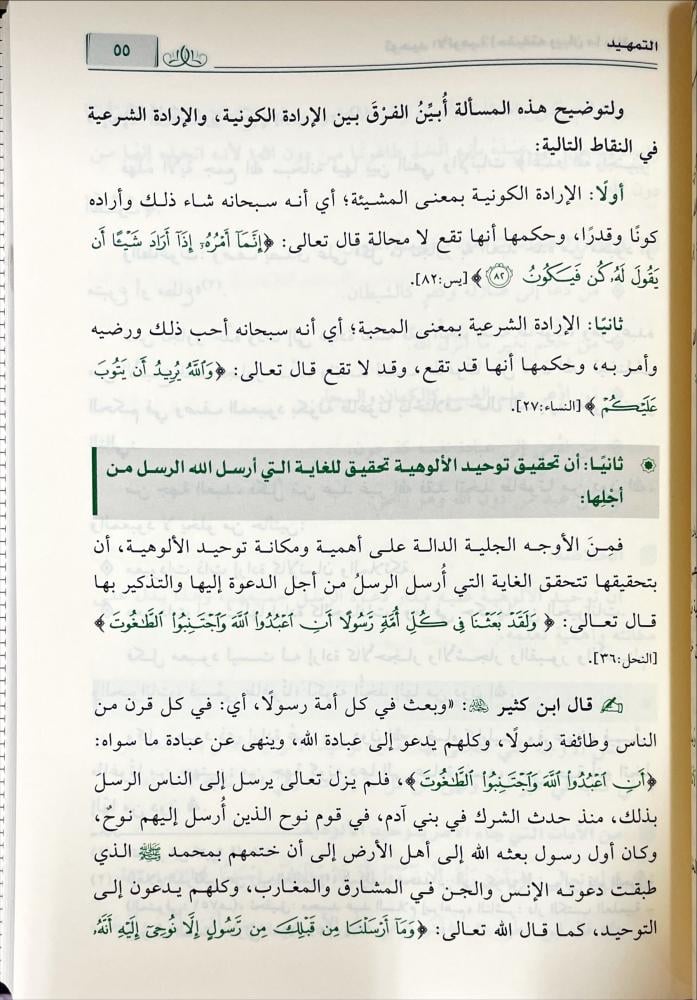 التمهيد
٥٥
ولتوضيح هذه المسألة أُبيِّنُ الفرْقَ بين الإرادة الكونية، والإرادة الشرعية
في النقاط التالية:
أولًا: الإرادة الكونية بمعنى المشيئة؛ أي أنه سبحانه شاء ذلك وأراده
كونًا وقدرًا، وحكمها أنها تقع لا محالة قال تعالى: ﴿إِنَّمَآ أَمْرُهُۥٓ إِذَآ أَرَادَ شَيْـًٔا أَن
يَقُولَ لَهُۥ كُن فَيَكُونُ ۝٨٢﴾ [يس:٨٢].
ثانيًا: الإرادة الشرعية بمعنى المحبة؛ أي أنه سبحانه أحب ذلك ورضيه
وأمر به، وحكمها أنها قد تقع، وقد لا تقع قال تعالى: ﴿وَٱللَّهُ يُرِيدُ أَن يَتُوبَ
عَلَيْكُمْ﴾ [النساء:٢٧].
ثانيًا: أن تحقيق توحيد الألوهية تحقيق للغاية التي أرسل الله الرسل من
أجْلِها:
فمِنَ الأوجه الجلية الدالة على أهمية ومكانة توحيد الألوهية، أن
بتحقيقها تتحقق الغاية التي أُرسل الرسلُ من أجل الدعوة إليها والتذكير بها
قال تعالى: ﴿وَلَقَدْ بَعَثْنَا فِى كُلِّ أُمَّةٍ رَّسُولًا أَنِ ٱعْبُدُوا۟ ٱللَّهَ وَٱجْتَنِبُوا۟ ٱلطَّٰغُوتَ﴾
[النحل:٣٦].
قال ابن كثير ﵀: «وبعث في كل أمة رسولًا، أي: في كل قرن من
الناس وطائفة رسولًا، وكلهم يدعو إلى عبادة الله، وينهى عن عبادة ما سواه:
﴿أَنِ ٱعْبُدُوا۟ ٱللَّهَ وَٱجْتَنِبُوا۟ ٱلطَّٰغُوتَ﴾، فلم يزل تعالى يرسل إلى الناس الرسلَ
بذلك، منذ حدث الشرك في بني آدم، في قوم نوح الذين أُرسل إليهم نوحٌ،
وكان أول رسول بعثه الله إلى أهل الأرض إلى أن ختمهم بمحمد ﷺ الذي
طبقت دعوته الإنس والجن في المشارق والمغارب، وكلهم يدعون إلى
التوحيد، كما قال الله تعالى: ﴿وَمَآ أَرْسَلْنَا مِن قَبْلِكَ مِن رَّسُولٍ إِلَّا نُوحِىٓ إِلَيْهِ أَنَّهُۥ